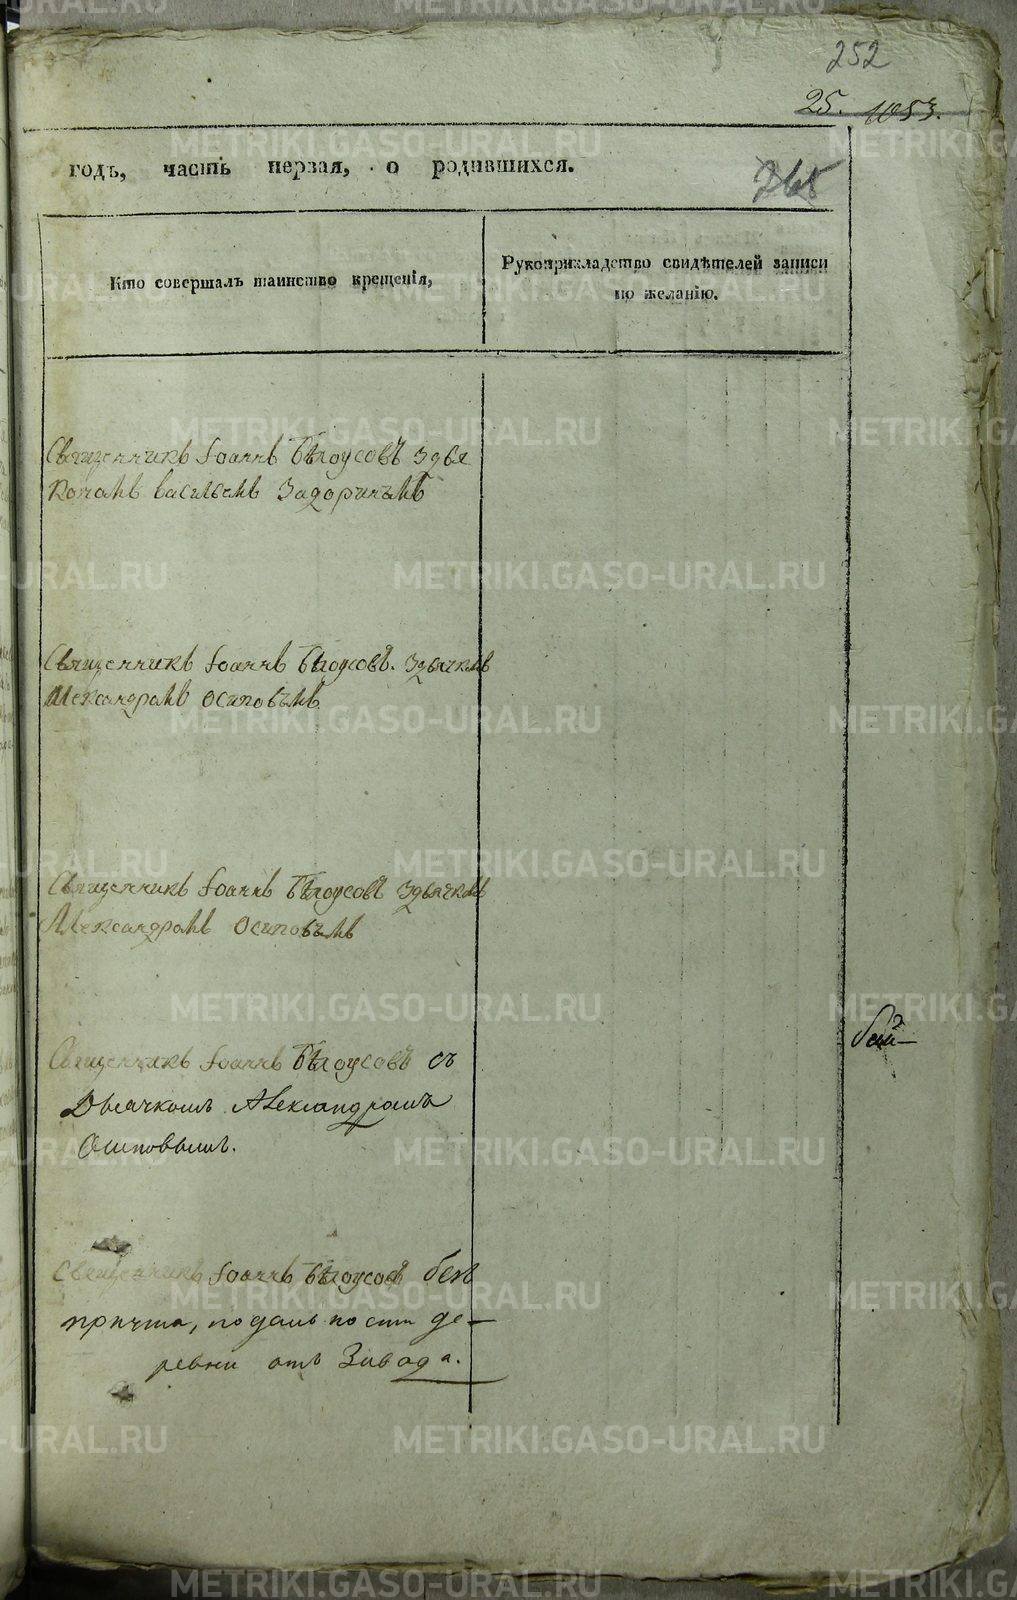 252
25. 1053.
годъ, часть первая, о родившихся.
265
Кто совершалъ таинство крещенія,
Рукоприкладство свидѣтелей записи
по желанію.
Священникъ Іоаннъ Бѣлоусовъ здья
кономъ василіемъ Задоринымъ
Священникъ Іоаннъ Бѣлоусовъ. здьячкомъ
Александромъ Осиповымъ
Священникъ Іоаннъ Бѣлоусовъ здьячкомъ
Александромъ Осиповымъ
Священникъ Іоаннъ Бѣлоусовъ съ
Дьячкомъ Александромъ
Осиповымъ.
Священникъ Іоаннъ Бѣлоусовъ безъ
причта, по дальности де-
ревни отъ Завода.
METRIKI.GASO-URAL.RU